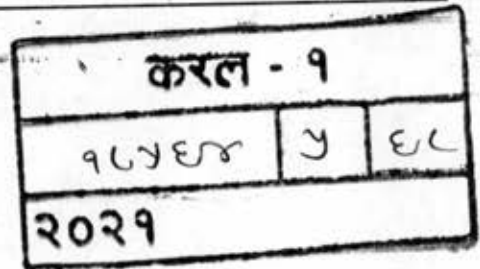 करल - १
१८५६४ ५ ६८
२०२१